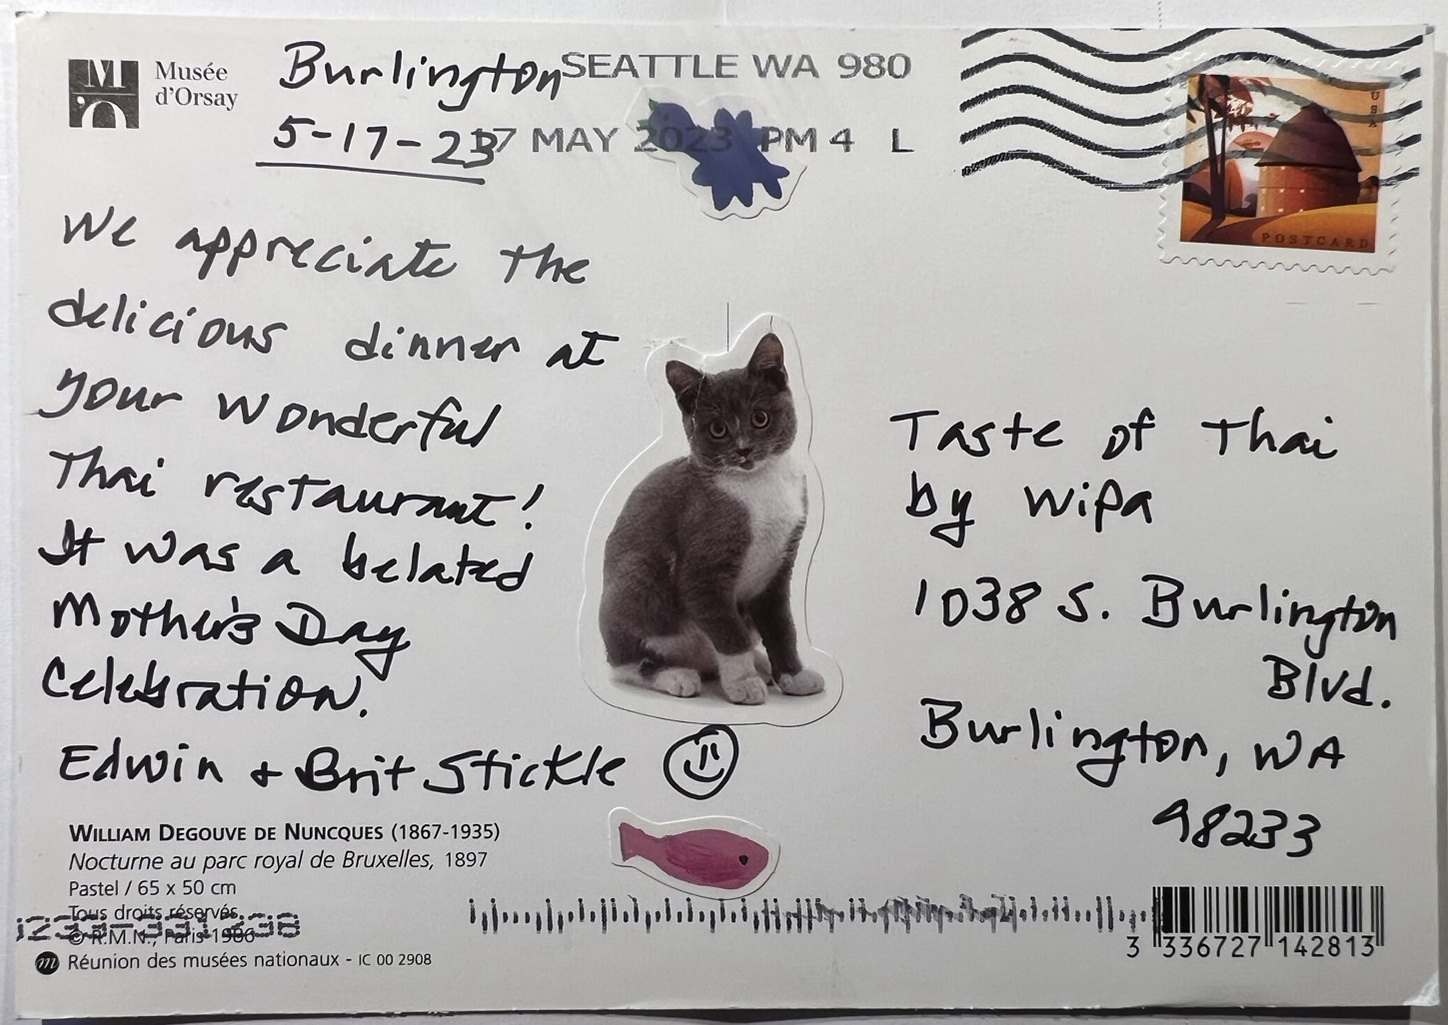 Musée
d'Orsay
Burlington
5-17-23
SEATTLE WA 980
17 MAY 2023 PM 4 L
USA
POSTCARD
We appreciate the
delicious dinner at
your wonderful
Thai restaurant!
It was a belated
Mother's Day
Celebration.
Edwin + Brit Stickle
Taste of Thai
by Wipa
1038 S. Burlington
Blvd.
Burlington, WA
98233
WILLIAM DEGOUVE DE NUNCQUES (1867-1935)
Nocturne au parc royal de Bruxelles, 1897
Pastel / 65 x 50 cm
Tous droits réservés
© R.M.N., Paris 1986
Réunion des musées nationaux - IC 00 2908
3 336727 142813